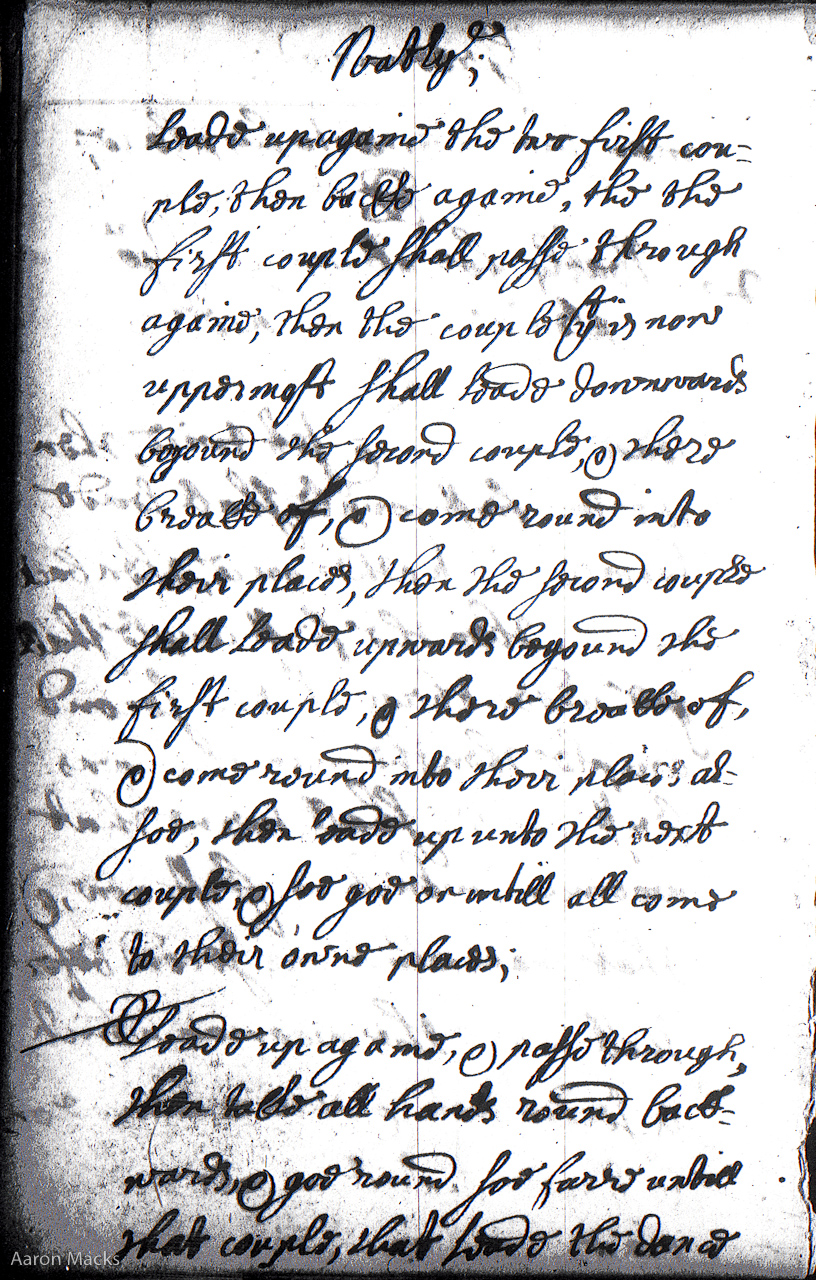 Natly;
Leade up againe the two first cou=
ple, then backe againe, the the
first couple shall passe through
againe, then the couple yt is now
uppermost shall leade downwards
beyound the second couple, & there
breake of, & come round into
their places, then the second couple
shall leade upwards beyound the
first couple, & there breake of,
& come round into their places al-
soe, then leade up unto the next
couple, & soe goe on untill all come
to their owne places;
Leade up againe, & passe through,
then take all hands round back-
wards, & goe round soe farre untill
that couple, that leade the dance
Aaron Macks